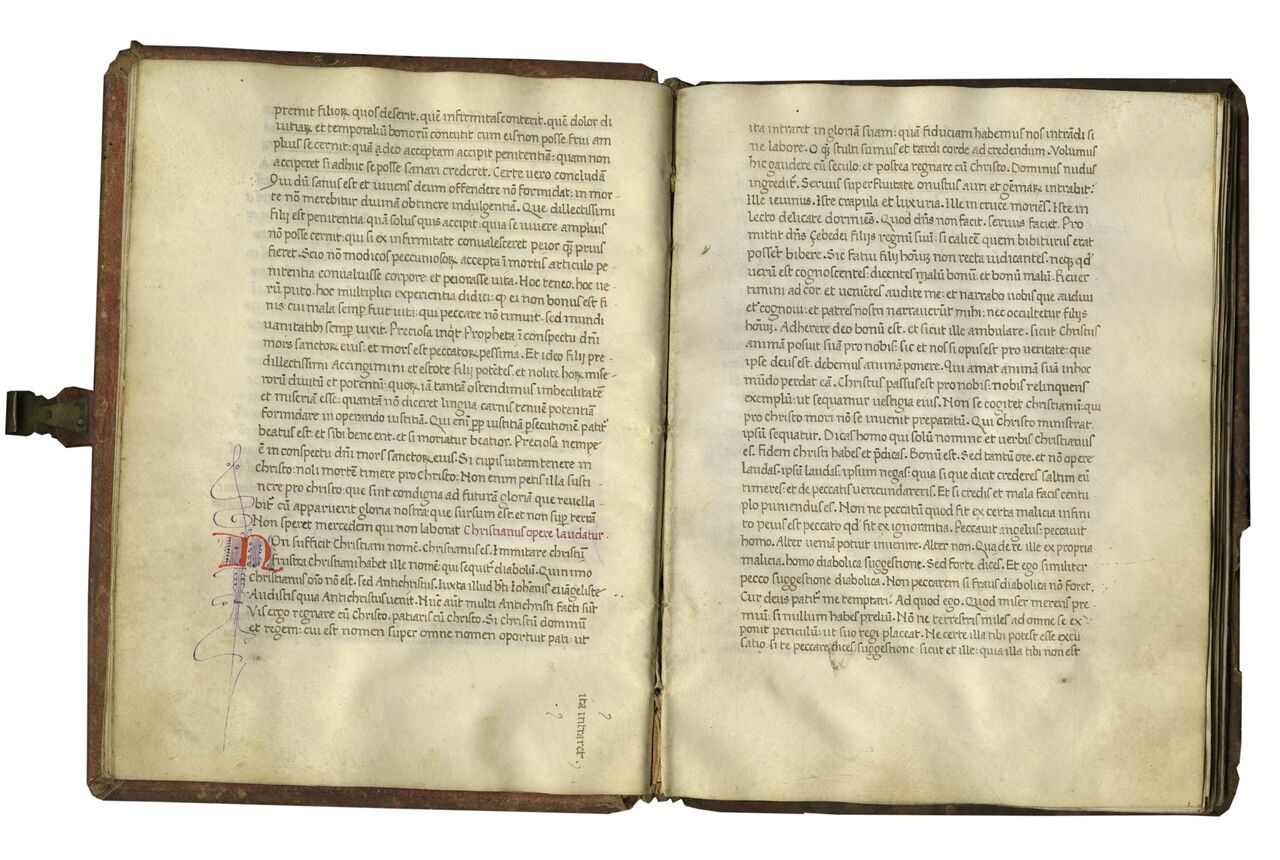 premit filioꝝ quos deserit. quē infirmitas conterit. quē dolor di
uitiaꝝ et temporaliū bonorū concutit cum eis non posse frui am
plius se cernit: quā adeo acceptam accipit penitentiā: quam non
acciperet si adhuc se posse sanari crederet. Certe uero concludā
Qui dū sanus est et iuuenis deum offendere nō formidat: in mor-
te nō merebitur diuinā obtinere indulgentiā. Que dillectissimi
filij est penitentia quā solus quis accipit: quia se uiuere amplius
nō posse cernit: qui si ex infirmitate conualesceret peior qȝ prius
fieret. Scio nō modicos pecuniosoꝝ accepta ī mortis articulo pe-
nitentia conualuisse corpore et peiorasse uita. Hoc teneo. hoc ue-
rū puto. hoc multiplici experientia didici: qꝫ ei non bonus est fi-
nis: cui mala semp̄ fuit uita: qui peccare nō timuit. sed mundi
uanitatibꝫ semp̄ uixit. Preciosa inqͥt Propheta ī conspectu dn̄i
mors sanctoꝝ eius: et mors est peccatoꝝ pessima. Et ideo filij pre-
dillectissimi Accingimini et estote filij potētes. et nolite hoꝝ mise-
rorū diuitū et potentū: quoꝝ iā tantā ostendimus imbecilitatē
et miseriā esse: quantā nō diceret lingua carnis tenuē potentiā
formidare in operando iustitiā. Qui enī ꝓꝑ iustitiā ꝑsecutionē patit᷑
beatus est: et sibi bene erit. et si moriatur beatior. Preciosa nempe
ē in conspectu dn̄i mors sanctoꝝ eius. Si cupis uitam tenere in
christo: noli mortē timere pro Christo: Non enim petis illa susti
nere pro christo: que sint condigna ad futurā gloriā que reuella-
bit᷑ cū apparuerit gloria nostra: que sursum est: et non suꝑ terrā
Non speret mercedem qui non laborat Christianus opere laudatur.
NOn sufficit Christiani nomē. christianus es. Immitare christū
frustra christiani habet ille nomē: qui sequit᷑ diabolū. Quinimo
christianus oīo nō est. sed Antichristus. Iuxta illud bt̄i Iohānis euāgeliste
Audistis quia Antichristus uenit. Nūc aūt multi Antichristi facti sūt
Vis ergo regnare cū Christo. patiaris cū christo. Si christū dominū
et regem: cui est nomen super omne nomen oportuit pati: ut
ita intraret
ita intraret in gloriā suam: quā fiduciam habemus nos intrādi si
ne labore. O qȝ stulti sumus et tardi corde ad credendum. Volumus
hic gaudere cū seculo: et postea regnare cū Christo. Dominus nudus
ingredit᷑. Seruus superfluitate onustus auri et gēmaꝝ intrabit:
Ille ieiunus. Iste crapula et luxuria. Ille in cruce moriēs. Iste in
lecto delicate dormiēs. Quod dn̄s non facit. seruus faciet. Pro
mittit dn̄s Çebedei filijs regnū suū: si calicē quem bibiturus erat
possēt bibere. Sic fatui filij hoīuꝫ non recta iudicantes. neqȝ qd̓
uerū est cognoscentes: dicentes malū bonū: et bonū malū. Reuer
timini ad cor. et ueniētes audite me: et narrabo uobis que audiui
et cognoui: et patres nostri narrauerūt mihi: nec occultetur filijs
hoīuꝫ. Adherere deo bonū est. et sicut ille ambulare. sicut Christus
animā posuit suā pro nobis: sic et nos si opus est pro ueritate: que
ipse deus est. debemus animā ponere. Qui amat animā suā in hoc
mūdo perdat eā. Christus passus est pro nobis: nobis relinquens
exemplū: ut sequamur uestigia eius. Non se cogitet christianū: qui
pro christo mori nō se inuenit preparatū. Qui Christo ministrat.
ipsū sequatur. Dicas homo qui solū nomine et uerbis christianus
es. Fidem christi habes et p̄dicas. Bonū est. Sed tantū ore. et nō opere
laudas. ipsū laudas. ipsum negas: quia si que dicit crederes saltim eū
timeres: et de peccatis uerecundareris. Et si credis et mala facis centu
plo puniendus es. Non ne peccatū quod fit ex certa malicia infini
to peius est peccato qd̓ fit ex ignorantia. Peccauit angelus: peccauit
homo. Alter ueniā potuit inuenire. Alter non. Qua de re ille ex propria
malicia. homo diabolica suggestione. Sed forte dices. Et ego similiter
pecco suggestione diabolica. Non peccarem si fraus diabolica nō foret.
Cur deus patit᷑ me temptari. Ad quod ego. Quod miser mereris pre-
miū: si nullum habes preliū. Nō ne terrestris miles ad omne se ex-
ponit periculū: ut suo regi placeat. Ne certe illa tibi potest esse excu
satio. si te peccare dices suggestione: sicut et ille: quia illa tibi non est